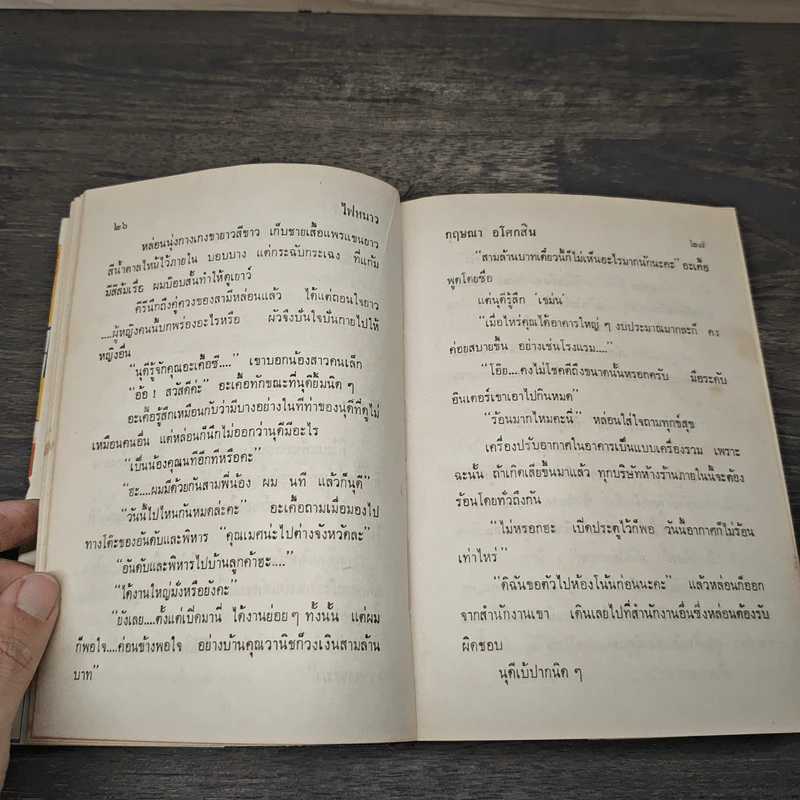 ๒๖ ไฟหนาว
หล่อนนุ่งกางเกงขายาวสีขาว เก็บชายเสื้อแพรแขนยาว
สีน้ำตาลไหม้ไว้ภายใน บอบบาง แต่กระฉับกระเฉง ที่แก้ม
มีสีส้มเรื่อ ผมบ๊อบสั้นทำให้ดูเยาว์
คีรีนึกถึงคู่ควงของสามีหล่อนแล้ว ได้แต่ถอนใจยาว
....ผู้หญิงคนนี้บกพร่องอะไรหรือ ผัวจึงปั่นใจปั่นกายไปให้
หญิงอื่น
“นุดีรู้จักคุณอะเคื้อซี....” เขาบอกน้องสาวคนเล็ก
“อ้อ ! สวัสดีค่ะ” อะเคื้อทักขณะที่นุดียิ้มนิด ๆ
อะเคื้อรู้สึกเหมือนกับว่ามีบางอย่างในทีท่าของนุดีที่ดูไม่
เหมือนคนอื่น แต่หล่อนก็นึกไม่ออกว่านุดีมีอะไร
“เป็นน้องคุณนทีอีกทีหรือคะ”
“ฮะ....ผมมีด้วยกันสามพี่น้อง ผม นที แล้วก็นุดี”
“วันนี้ไปไหนกันหมดล่ะคะ” อะเคื้อถามเมื่อมองไป
ทางโต๊ะของอันดับและพิหาร “คุณเมศน่ะไปต่างจังหวัดละ”
“อันดับและพิหารไปบ้านลูกค้าฮะ....”
“ได้งานใหญ่มั่งหรือยังคะ”
“ยังเลย....ตั้งแต่เปิดมานี่ ได้งานย่อย ๆ ทั้งนั้น แต่ผม
ก็พอใจ....ค่อนข้างพอใจ อย่างบ้านคุณวานิชก็วงเงินสามล้าน
บาท”
กฤษณา อโศกสิน ๒๗
“สามล้านบาทเดี๋ยวนี้ก็ไม่เห็นอะไรมากนักนะคะ” อะเคื้อ
พูดโดยซื่อ
แต่นุดีรู้สึก ‘เขม่น’
“เมื่อไหร่คุณได้อาคารใหญ่ ๆ งบประมาณมากละก็ คง
ค่อยสบายขึ้น อย่างเช่นโรงแรม....”
“โอ๊ย....คงไม่โชคดีถึงขนาดนั้นหรอกครับ มือระดับ
อินเตอร์เขาเอาไปกินหมด”
“ร้อนมากไหมคะนี่” หล่อนใส่ใจถามทุกข์สุข
เครื่องปรับอากาศในอาคารเป็นแบบเครื่องรวม เพราะ
ฉะนั้น ถ้าเกิดเสียขึ้นมาแล้ว ทุกบริษัทห้างร้านภายในนี้จะต้อง
ร้อนโดยทั่วถึงกัน
“ไม่หรอกฮะ เปิดประตูไว้ก็พอ วันนี้อากาศก็ไม่ร้อน
เท่าไหร่”
“ดิฉันขอตัวไปห้องโน้นก่อนนะคะ” แล้วหล่อนก็ออก
จากสำนักงานเขา เดินเลยไปที่สำนักงานอื่นซึ่งหล่อนต้องรับ
ผิดชอบ
นุดีเบ้ปากนิด ๆ